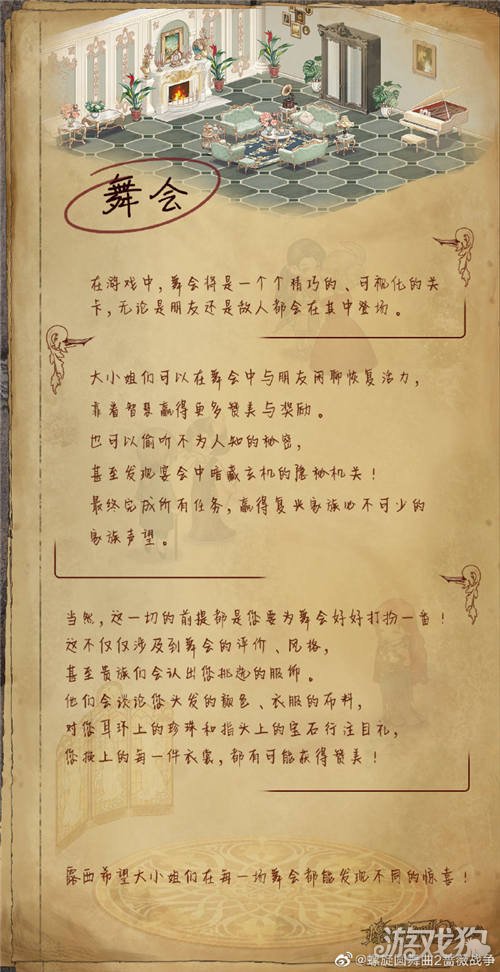 舞会
在游戏中，舞会将是一个个精巧的、可视化的关
卡，无论是朋友还是敌人都会在其中登场。
大小姐们可以在舞会中与朋友闲聊恢复活力，
靠着智慧赢得更多赞美与奖励。
也可以偷听不为人知的秘密，
甚至发现宴会中暗藏玄机的隐秘机关！
最终完成所有任务，赢得复兴家族必不可少的
家族声望。
当然，这一切的前提都是您要为舞会好好打扮一番！
这不仅仅涉及到舞会的评价、风格，
甚至贵族们会认出您挑选的服饰。
他们会谈论您头发的颜色、衣服的布料，
对您耳环上的珍珠和指头上的宝石行注目礼，
您换上的每一件衣裳，都有可能获得赞美！
露西希望大小姐们在每一场舞会都能发现不同的惊喜！
游戏狗
@螺旋圆舞曲2蔷薇战争